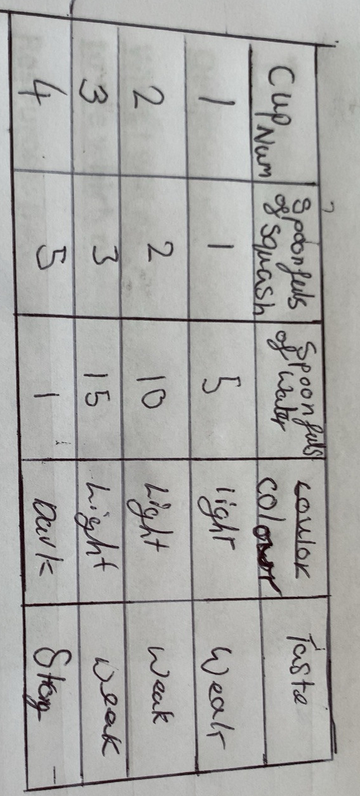 Cup Num Spoonfuls of Squash Spoonfuls of Water colour Taste
1 1 5 light Weak
2 2 10 Light Weak
3 3 15 Light weak
4 5 1 Dark